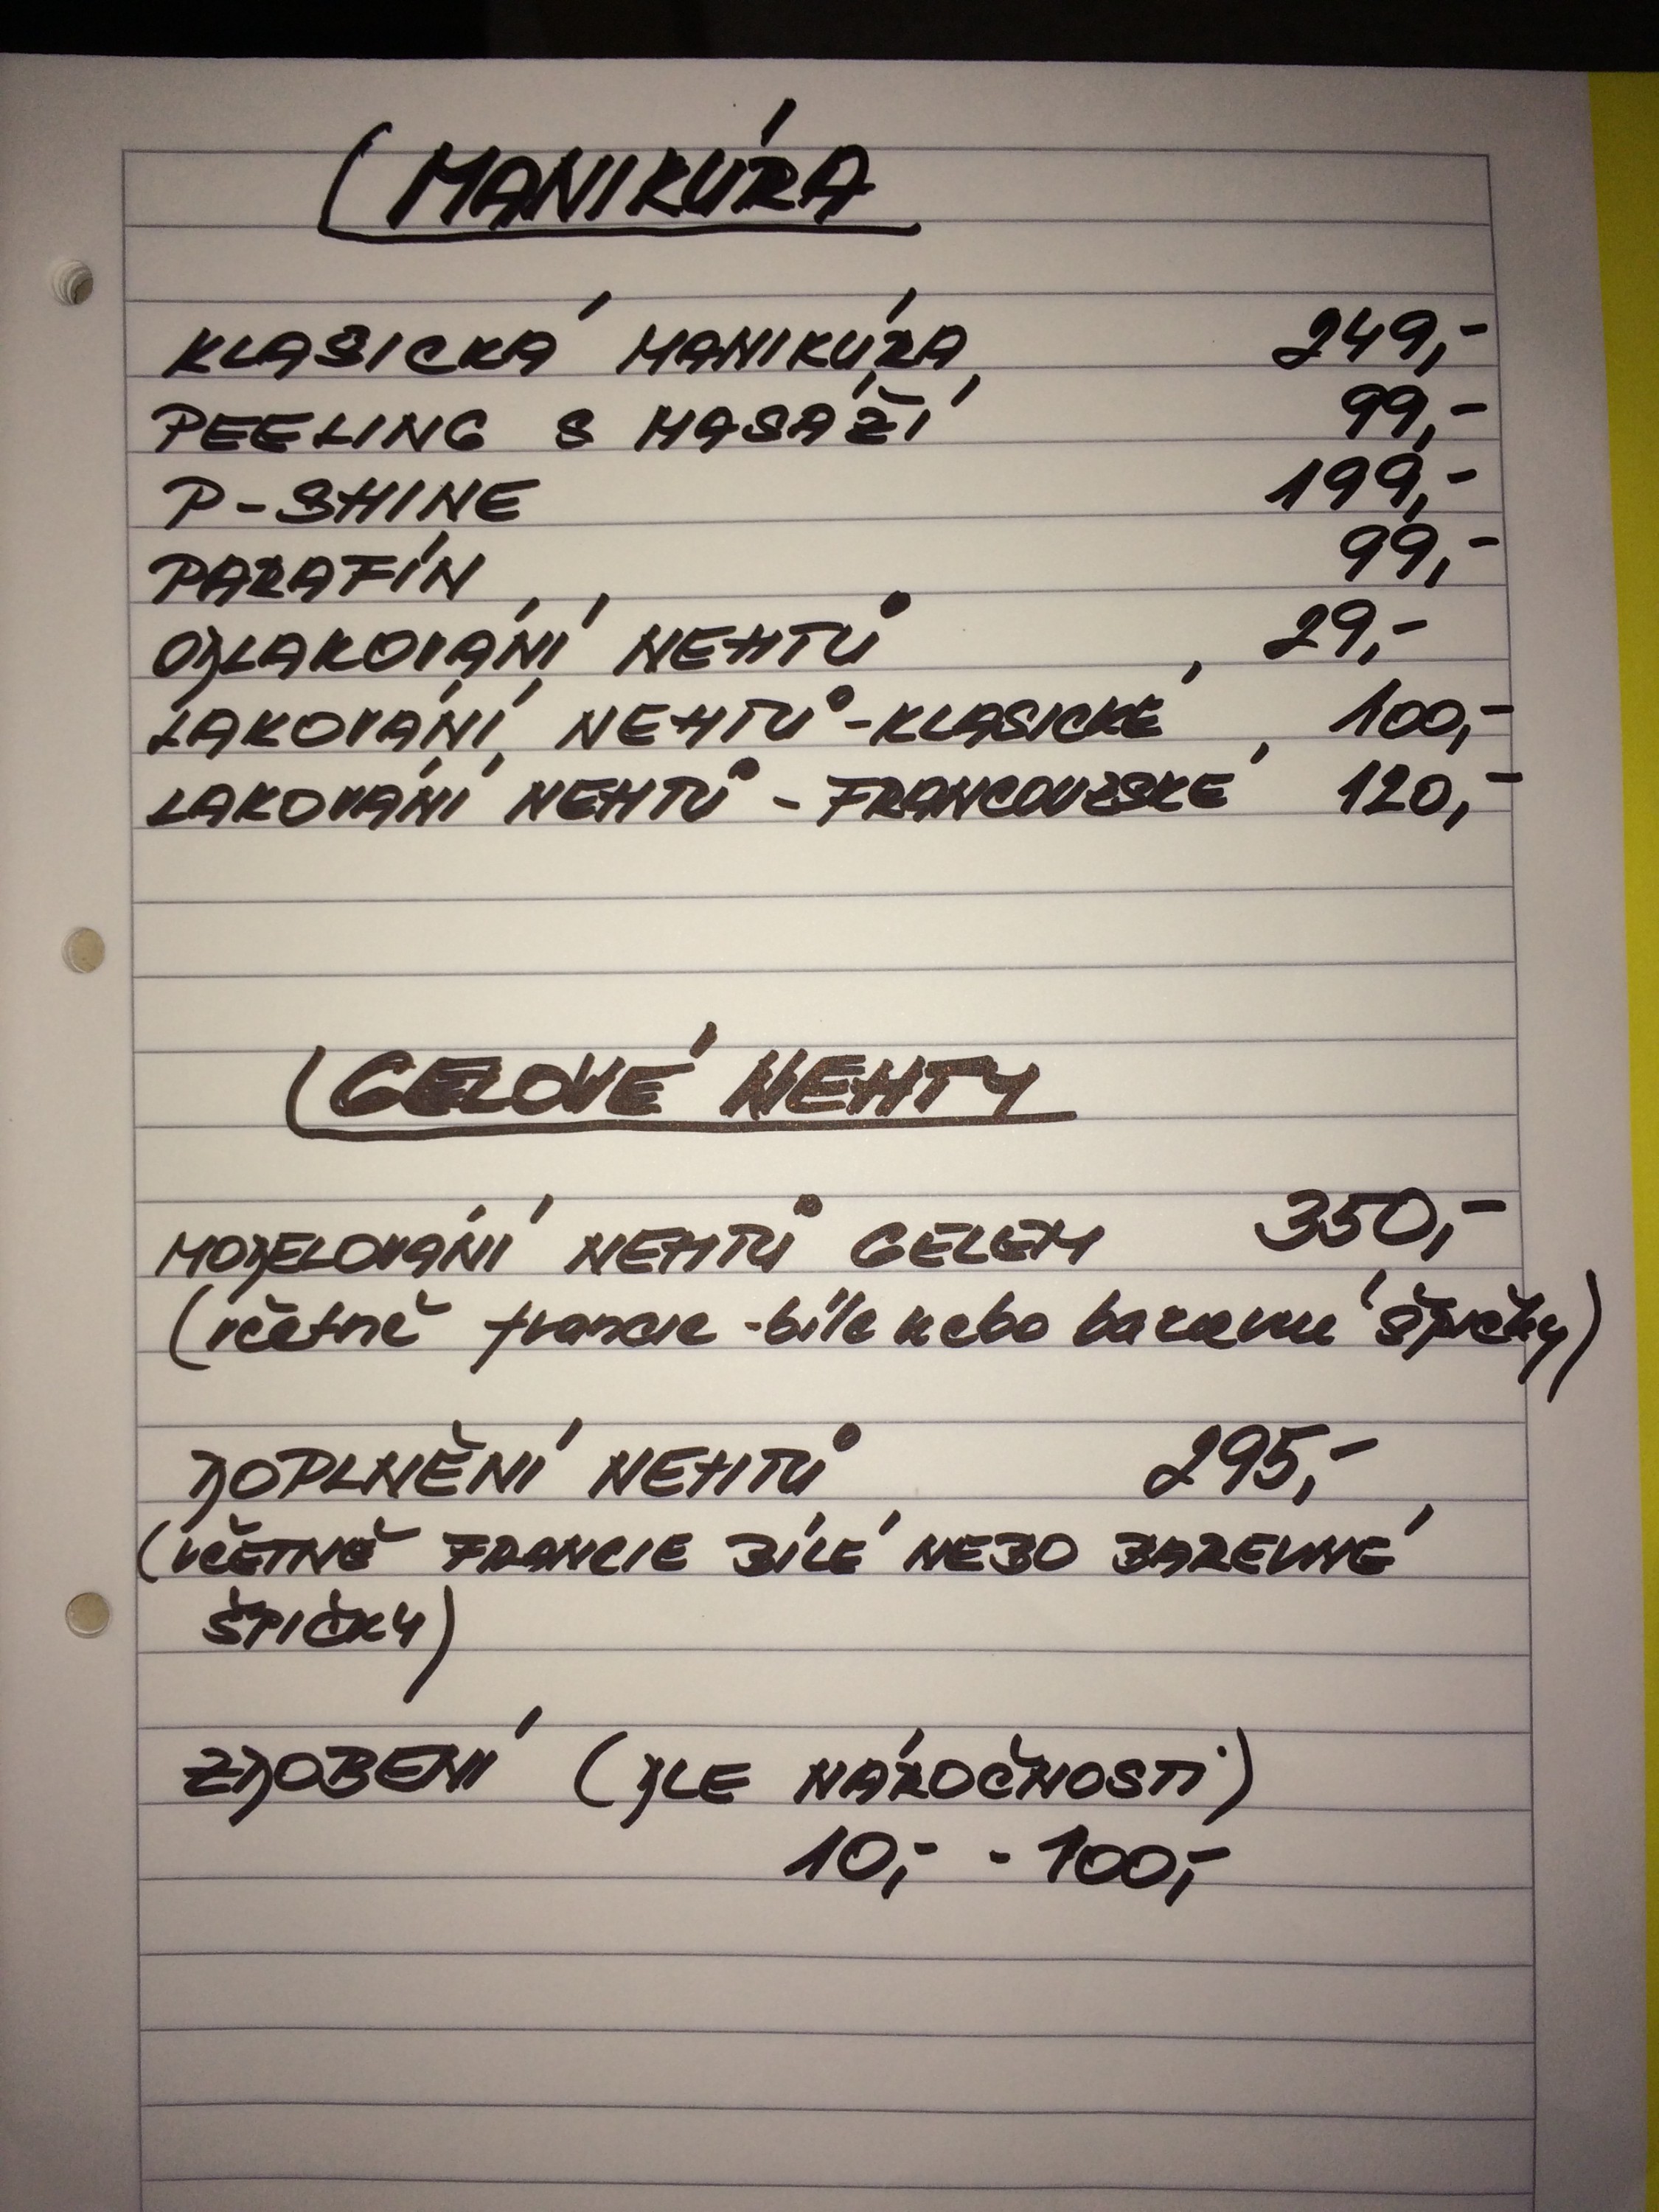 MANIKÚRA
KLASICKÁ MANIKÚRA 249,-
PEELING S MASÁŽÍ 99,-
P-SHINE 199,-
PARAFÍN 99,-
ODLAKOVÁNÍ NEHTŮ 29,-
LAKOVÁNÍ NEHTŮ-KLASICKÉ 100,-
LAKOVÁNÍ NEHTŮ - FRANCOUZSKÉ 120,-
GELOVÉ NEHTY
MODELOVÁNÍ NEHTŮ GELEM 350,-
(včetně francie - bílé nebo barevné špičky)
DOPLNĚNÍ NEHTŮ 295,-
(VČETNĚ FRANCIE BÍLÉ NEBO BAREVNÉ
ŠPIČKY)
ZDOBENÍ (DLE NÁROČNOSTI)
10,- - 100,-